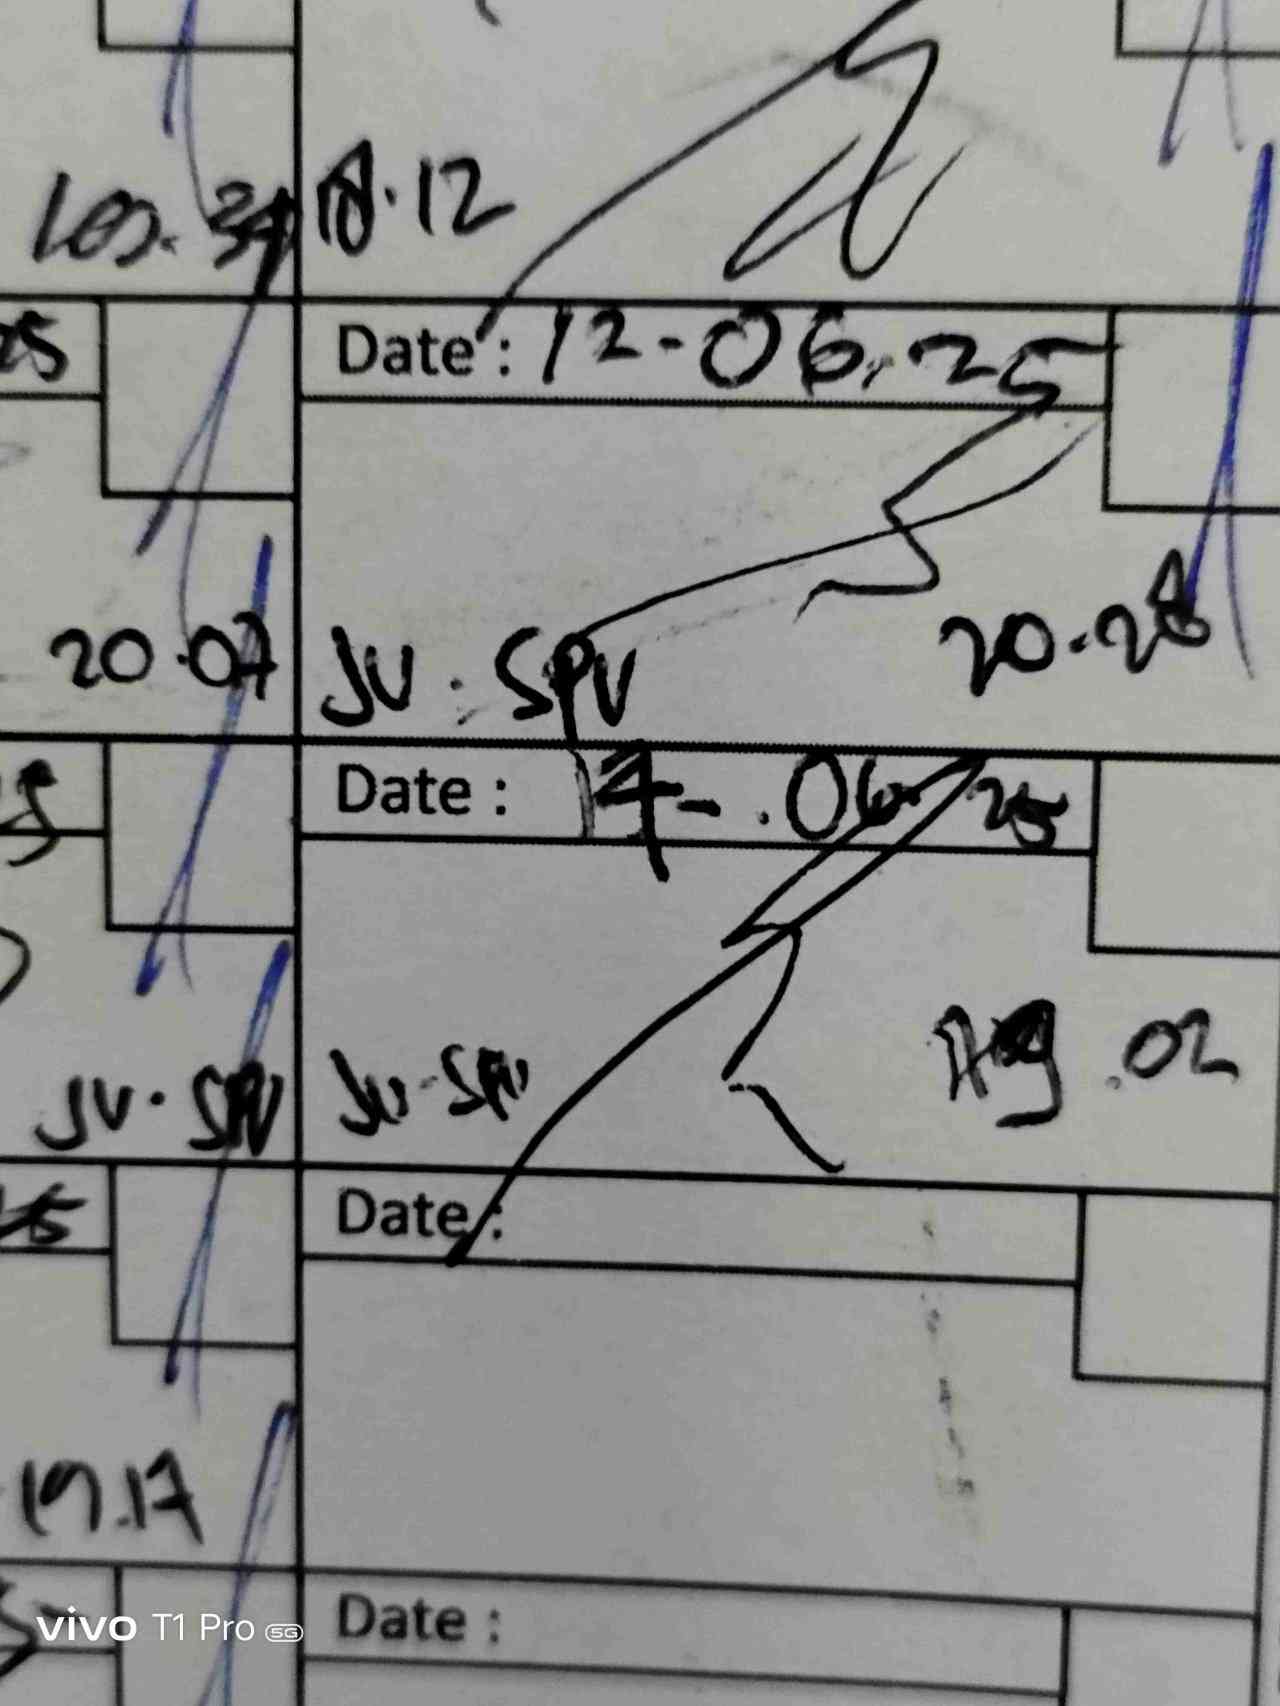 18.12
Date : 12-06.25
20.07 JU . SPV 20.28
Date : 06 25
JV . SPV JU - SPV .02
Date :
19.17
Date :
vivo T1 Pro 5G